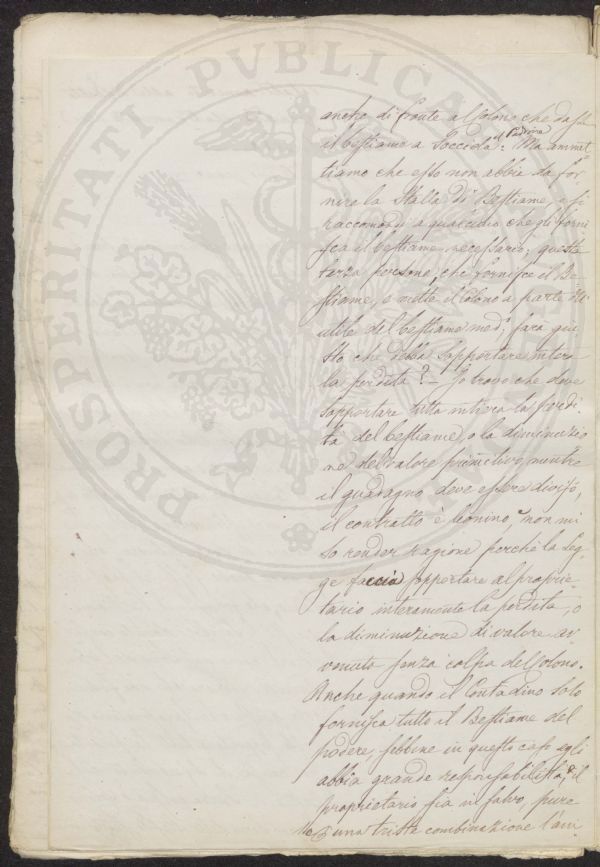 PROSPERITATI PUBLICAE
anche di fronte al Colono che da
il Padrone
il bestiame a Soccida: Ma ammet=
tiamo che esso non abbia da for=
nire la Stalla di Bestiame, e si
raccomandi a qualcuno che gli forni
sca il bestiame necessario; questa
terza persona, che fornisce il Be=
stiame, e mette il Colono a parte dell'
utile del bestiame med:º sarà giu
sto che debba sopportare intera
la perdita? – Io trovo che deve
sopportare tutta intiera la perdi
ta del bestiame, o la diminuzio
ne del valore primitivo, mentre
il guadagno deve essere diviso,
il contratto è leonino, non mi
so render ragione perchè la Leg=
ge faccia sopportare al proprie
tario interamente la perdita, o
la diminuzione di valore av=
venuta senza colpa del Colono.
Anche quando il Contadino solo
fornisca tutto il Bestiame del
podere, sebbene in questo caso egli
abbia grande responsabilità, e il
proprietario sia in salvo, pure
se una trista combinazione l'an